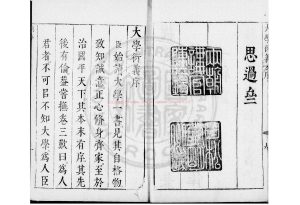 思過
大學衍義序
臣始讀大學一書見其自格物
致知誠意正心脩身齊家至於
治國平天下其本末有序其先
後有倫蓋嘗撫卷三歎曰爲人
君者不可㠯不知大學爲人臣